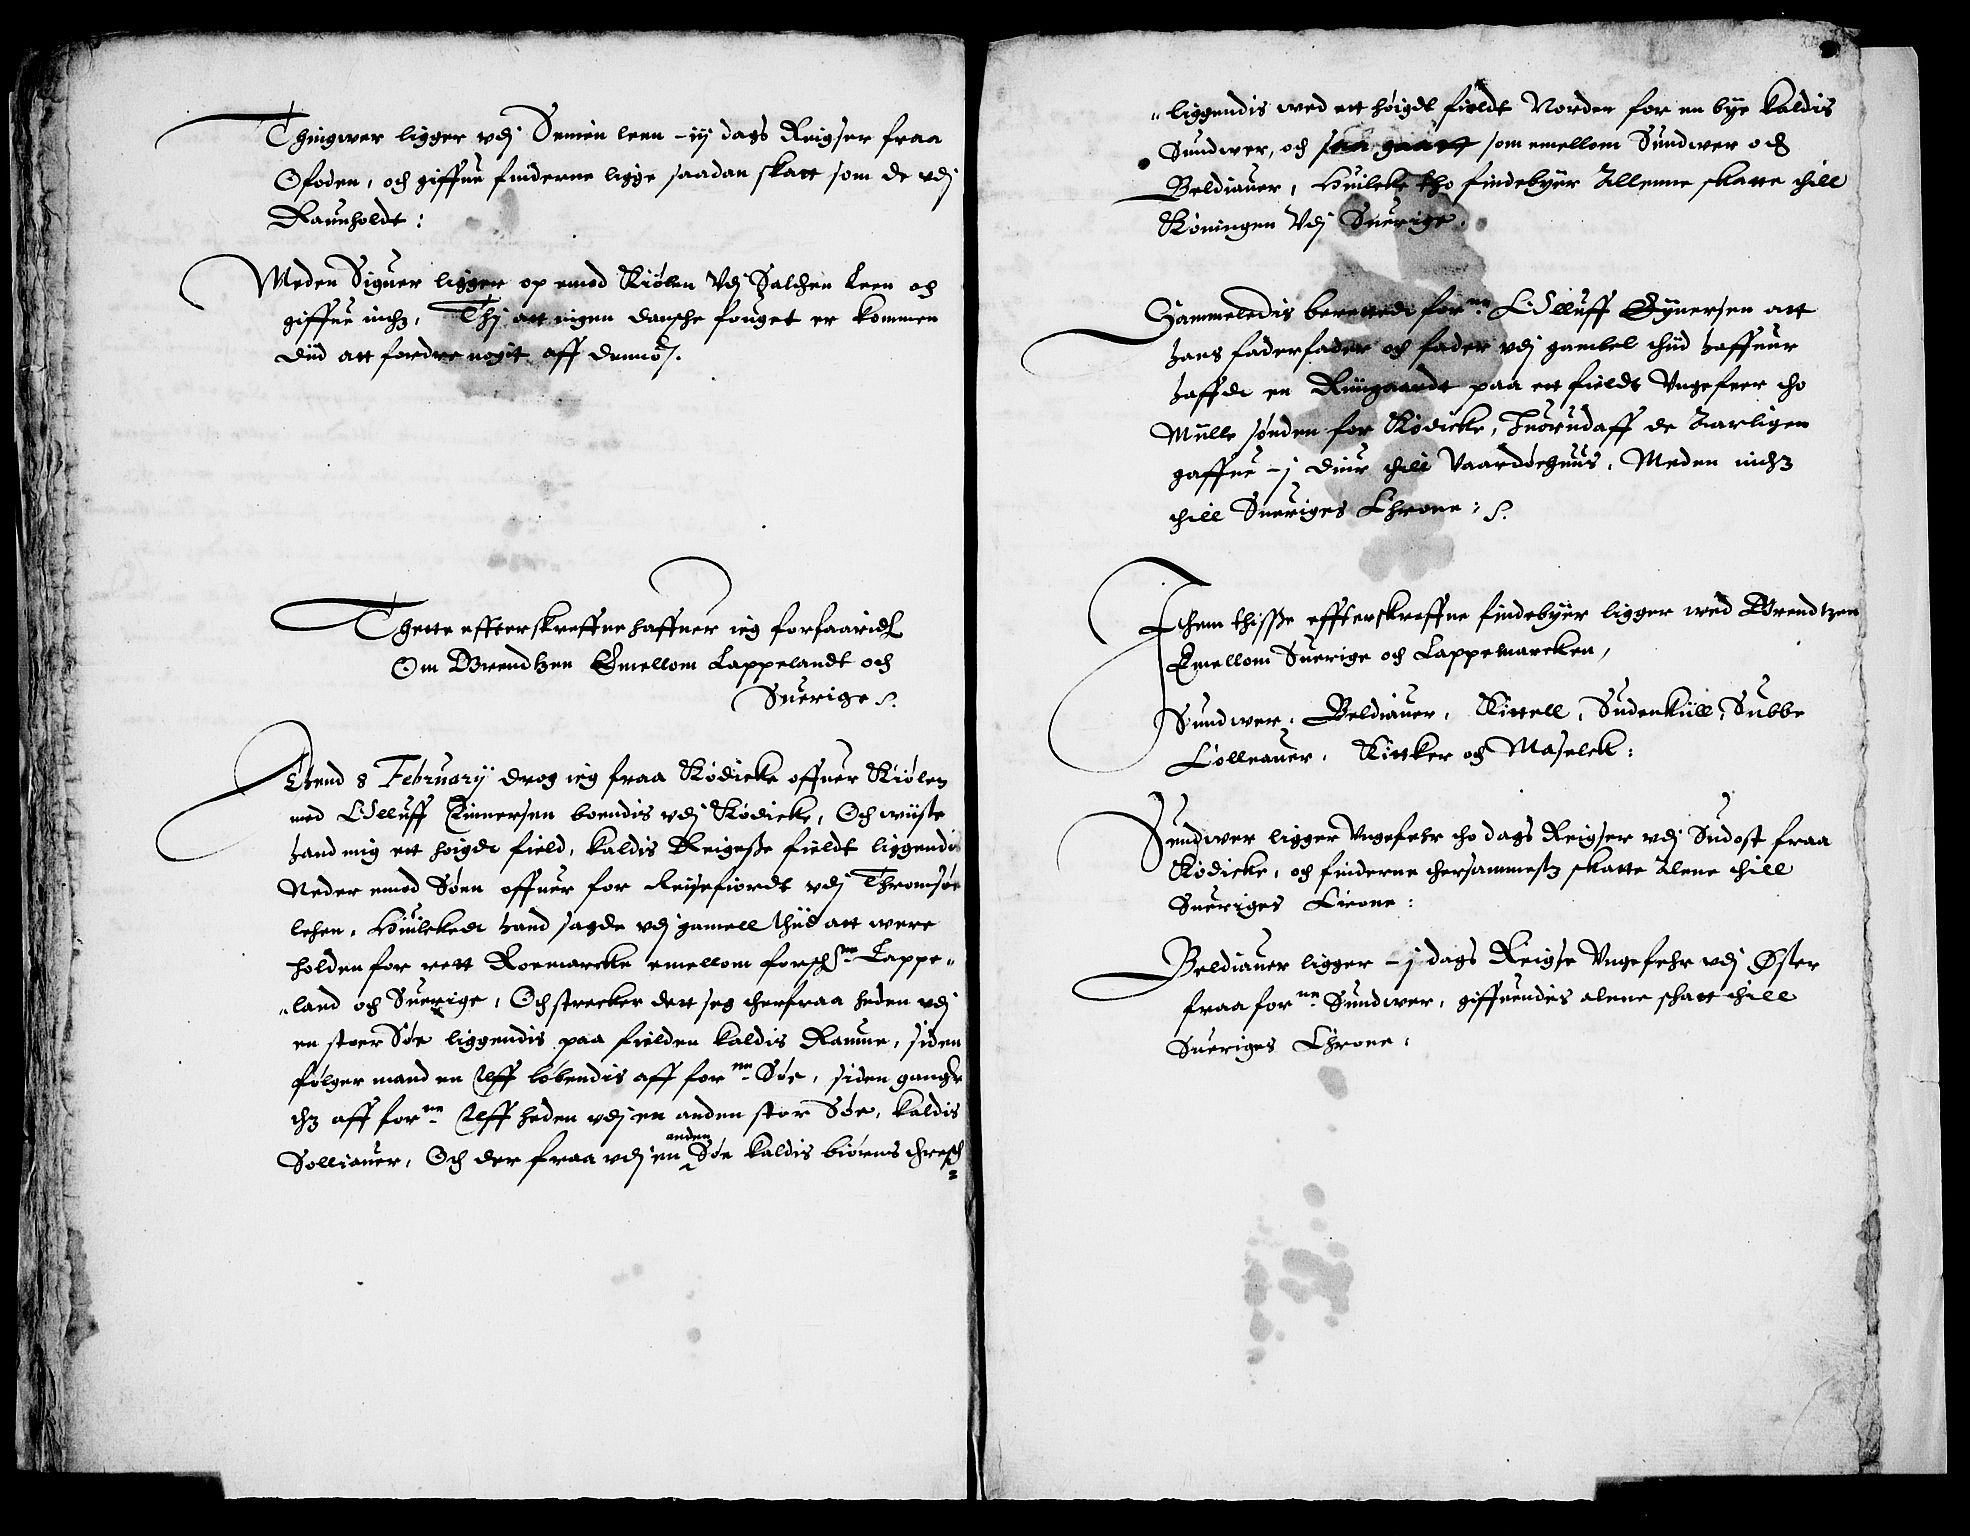 Thingwer ligger vdj Semien leen - iij dags Reigser fraa
Ofoden, och giffue finderne ligge saadan skatt som de vdj
Raunholdt:
Meden Siguer ligger op emod Kiølen Vdj Salthen Leen och
giffue inthz, Thj att ingen dansche fouget er kommen
diid att fordre nogit aff dennom.
Thette effterskreffne haffuer ieg forfaaridt
Om Grendtzen Emellom Lappelandt och
Suerige
Thend 8 February drog ieg fraa Kødicke offuer Kiølen
med Olluff Einersen boendis vdj Kødicke, Och wiiste
hand mig ett høigde field, kaldis Reigesße fieldt liggendis
Neder emod Søen offuer for Reisefiordt vdj Thromsøe
lehen, Huilckede hand sagde vdj gamell thiid att were
holden for rett Roemarcke emellom forschne Lappe-
land och Suerige, Och strecker dett seg therfraa heden vdj
en stoer Søe liggendis paa fielden kaldis Ramme, siden
følger mand en Elff løbendis aff forne Søe, siden ganger
thz aff forne Elff heden vdj en anden stor Søe, kaldis
Solliauer, Och der fraa vdj en anden Søe kaldis biørns thresch
liggendis wed ett høigdt fieldt Norden for en bye kaldis
Sundwer, och saa gaarr som emellom Sundwer och
Beldiauer, Huilcke tho findebyer Allenne skatte thill
Koningen Vdj Suerige.
Sammeledis berettede forne Olluff Eynersen att
hans faderfader och fader vdj gambel thiid haffuer
haffde en Ringaardt paa ett fieldt Vngefeer tho
Miille sønden for Kødicke, Huorudaff de Aarligen
gaffue - j diur thill Vaardøehuus, Meden inthz
thill Sueriges Chrone:
Ithem thisße effterskreffne findebyer ligger wed Grendtzen
Emellom Suerige och Lappemarcken,
Sundwer, Beldiauer, Kittell, Sudenkiill, Subbe
Lolleauer, Kittker och Maselck:
Sundwer ligger Vngefehr tho dags Reigser vdj Sudost fraa
Kødicke, och finderne thersammestz skatte Alene thill
Sueriges Crone:
Beldiauer ligger - j dags Reigse Vngefehr vdj Øster
fraa forne Sundwer, giffuendis alene schatt thill
Sueriges Chrone: